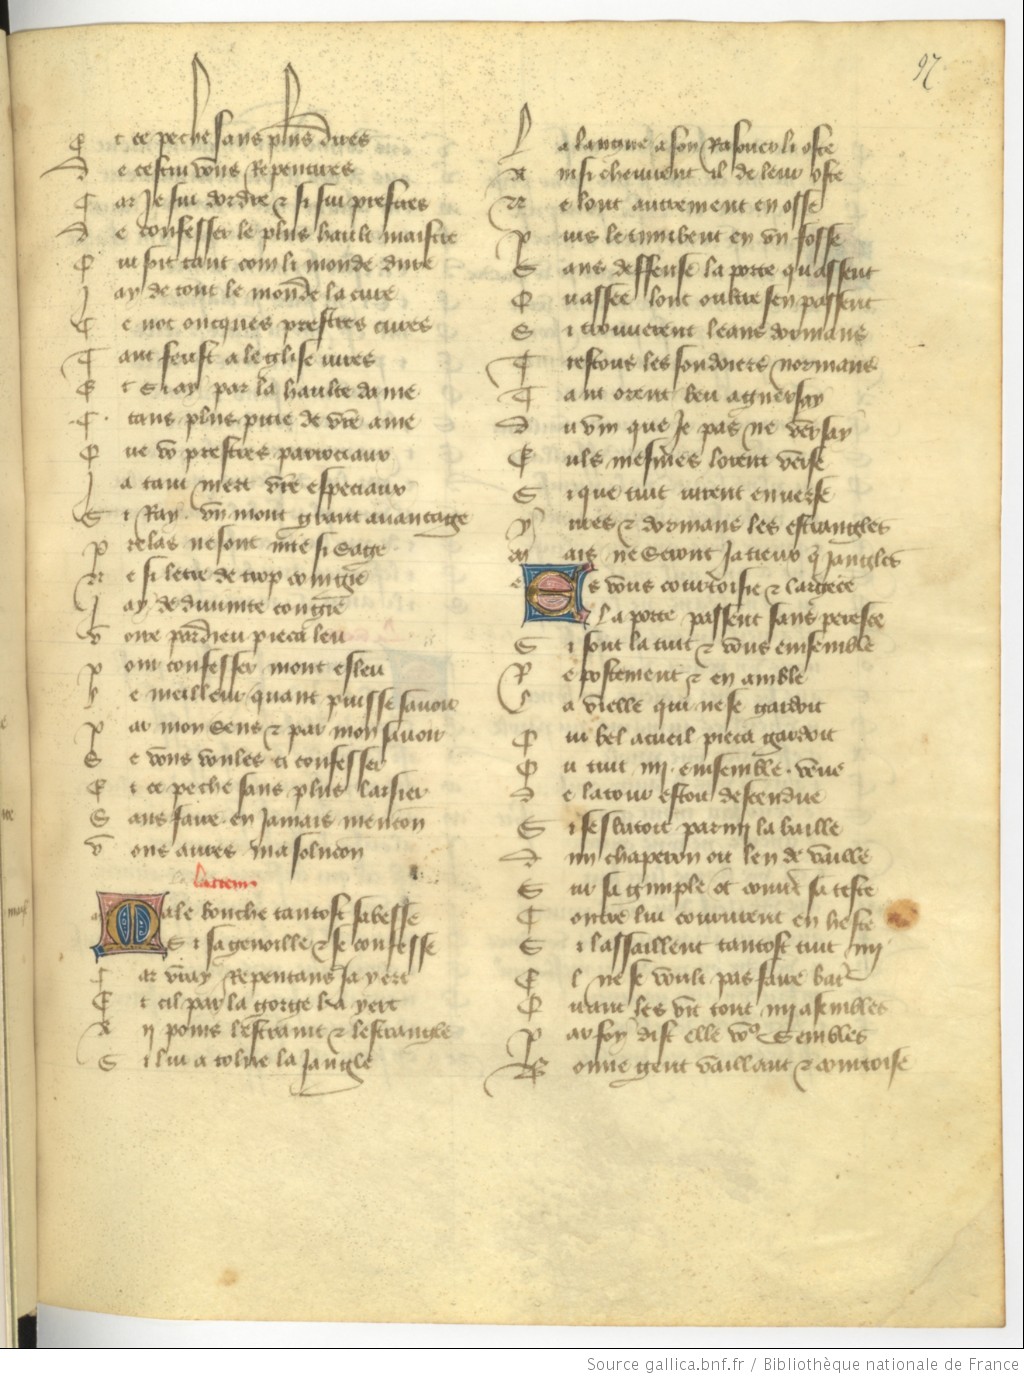 97
Et ce peche sans plus dires
De cestui vous repentires
Car Je sui dordre et si sui prestres
De confesser le plus hault maistre
Qui soit tant com li monde dure
Jay de tout le monde la cure
Ce not oncques prestres cures
Tant feust a leglise iures
Et si ay par la haulte dame
C tans plus pitie de vre ame
Que vo prestres parrociaux
Ja tant niert vre especiaux
Si Ray vn mont grant auantage
Prelas ne sont mie si sage
Ne si letre de trop com gie
Jay de diuinite congie
Voire pardieu pieca leu
Pour confesser mont esleu
Le meilleur quant puisse sauoir
Par mon sens et par mon sauoir
Se vous voules ci confesser
Et ce peche sans plus laissier
Sans faire en Jamais mencon
Vous aures ma solucon
lacteur
Male bouche tantost sabesse
Si sagenoille et se confesse
Car vray Repentans Ja yert
Et cil par la gorge la yert
A ij poins lestraint et lestrangle
Si lui a tolue la Jangle
La langue a son Rasouer li oste
Ainsi cheuirent il de leur oste
Ne lont autrement en osse
Puis le tumbent en vn fosse
Sans deffense la porte quassent
Quassee lont oultre sen passent
Si trouuerent leans dormans
Trestous les soudoiers normans
Tant orent beu a guersay
Du vin que Je pas ne versay
Euls mesmes lorent verse
Si que tuit iurent enuerse
Yures et dormans les estrangles
Mais ne seront Ja tieux q Jangles
Es vous courtoisie et largece
La porte passent sans peresce
Si sont la tuit et vous ensemble
Repostement et en amble
La vielle qui ne se gardoit
Qui bel acueil pieca gardoit
Ou tuit iiij ensemble veue
De la tour estoit descendue
Si sesbatoit parmi la baille
Dun chaperon ou leu de vaille
Sur sa gimple ot couuer sa teste
Contre lui coururent en heste
Si lassaillent tantost tuit iiij
El ne se voult pas faire batre
Quant les vit tout iiij asembles
Par foy dist elle vous sembles
Bonne gent vaillant et courtoise
Source gallica.bnf.fr / Bibliothèque nationale de France